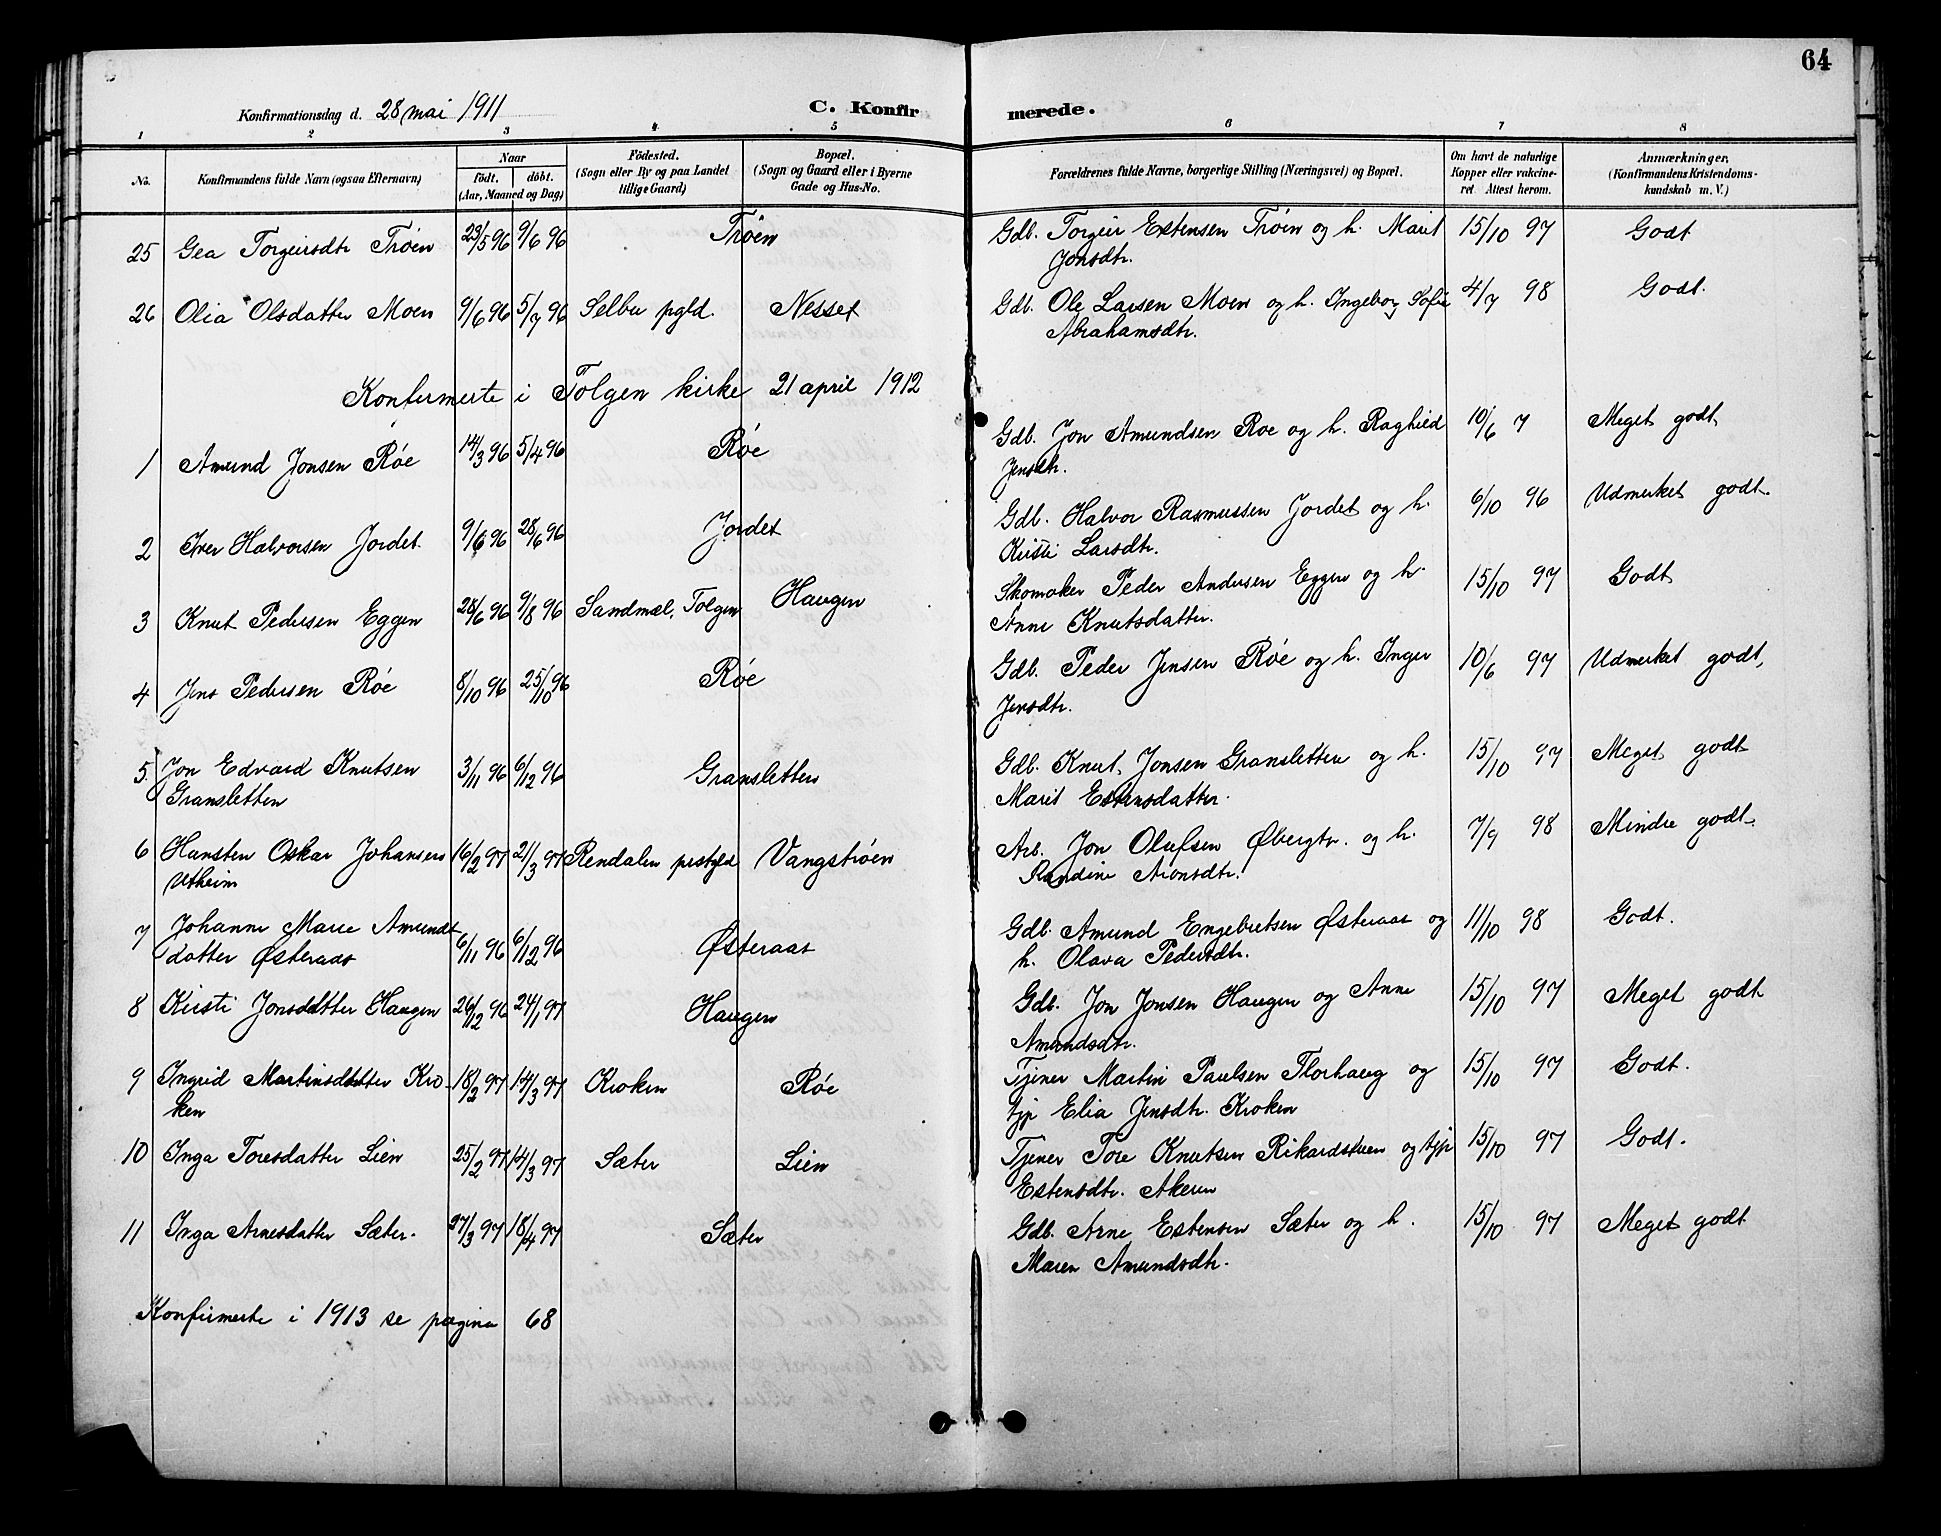 64
Konfirmationsdag d. 28 mai 1911
C. Konfirmerede.
1 2 3 4 5 6 7 8
No.
Konfirmandens fulde Navn (ogsaa Efternavn)
Naar
födt. döbt.
(Aar, Maaned og Dag)
Födested.
(Sogn eller By og paa Landet
tillige Gaard)
Bopæl.
(Sogn og Gaard eller i Byerne
Gade og Hus-No.
Forældrenes fulde Navne, borgerlige Stilling (Næringsvei) og Bopæl.
Om havt de naturlige
Kopper eller vakcine-
ret Attest herom.
Anmærkninger.
(Konfirmandens Kristendoms-
kundskab m. V.)
25 Gea Torgeirsdtr Trøen 23/5 96 9/6 96 Trøen Gdb. Torgeir Estensen Trøen og h. Marit 15/10 97 Godt
Jonsdtr.
26 Olia Olsdatter Moen 9/6 96 5/7 96 Selbu pgld. Nesset Gdb. Ole Larsen Moen og h. Ingeborg Sofie 4/7 98 Godt.
Abrahamsdtr.
Konfirmerte i Tolgen kirke 21 april 1912
1 Amund Jonsen Røe 14/3 96 5/4 96 Røe Gdb. Jon Amundsen Roe og h. Raghild 10/6 7 Meget godt
Jensdtr.
2 Iver Halvorsen Jordet 9/6 96 28/6 96 Jordet Gdb. Halvor Rasmussen Jordet og h. 6/10 96 Udmerket godt.
Kirsti Larsdtr.
3 Knut Pedersen Eggen 28/6 96 9/8 96 Sandmæl, Tolgen Haugen Skomaker Peder Andersen Eggen og h. 15/10 97 Godt
Anne Knutsdatter.
4 Jens Pedersen Røe 8/10 96 25/10 96 Røe Gdb. Peder Jensen Røe og h. Inger 10/6 97 Udmerket godt,
Jensdtr.
5. Jon Edvard Knutsen 3/11 96 6/12 96 Gransletten Gdb. Knut Jonsen Gransletten og h. 15/10 97 Meget godt
Gransletten Marit Estensdatter.
6 Hansten Oskar Johansen 16/2 97 21/3 97 Rendalen prstgld Vangstrøen Arb. Jon Olufsen Øbergtr. og h. 7/9 98 Mindre godt.
Utheim Randine Aronsdtr.
7 Johanne Marie Amunds 6/11 96 6/12 96 Østeraas Gdb. Amund Engebretsen Østeraas og 11/10 98 Godt.
datter Østeraas h. Olava Pedersdtr.
8 Kirsti Jonsdatter Haugen 26/12 96 24/1 97 Haugen Gdb. Jon Jonsen Haugen og Anne 15/10 97 Meget godt
Amundsdtr.
9 Ingrid Martinsdatter Kro- 18/2 97 14/3 97 Kroken Røe Tjener Martin Paulsen Florhaug og 15/10 97 Godt.
ken tjp Elia Jensdtr. Kroken
10 Inga Toresdatter Lien 25/2 97 14/3 97 Sæter Lien Tjener Tore Knutsen Rikardstuen og tjp 15/10 97 Godt.
Estensdtr. Akeren
11 Inga Arnesdatter Sæter. 27/3 97 18/4 97 Sæter Gdb. Arne Estensen Sæter og h. 15/10 97 Meget godt
Maren Amundsdtr.
Konfirmerte i 1913 se pagina 68